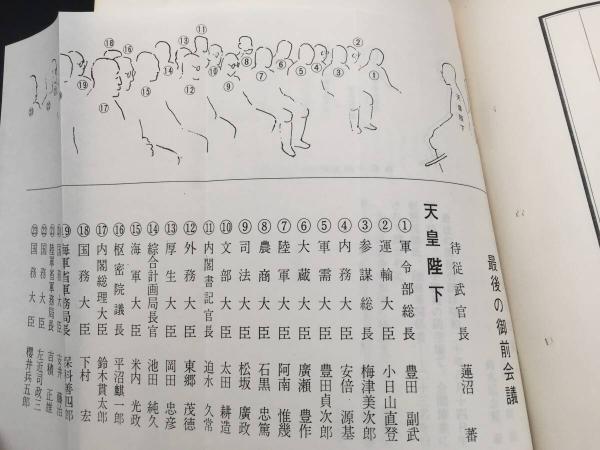 最後の御前会議
侍従武官長 蓮沼 蕃
天皇陛下
①軍令部総長 豊田 副武
②運輸大臣 小日山直登
③参謀総長 梅津美次郎
④内務大臣 安倍 源基
⑤軍需大臣 豊田貞次郎
⑥大蔵大臣 廣瀬 豊作
⑦陸軍大臣 阿南 惟幾
⑧農商大臣 石黒 忠篤
⑨司法大臣 松坂 廣政
⑩文部大臣 太田 耕造
⑪内閣書記官長 迫水 久常
⑫外務大臣 東郷 茂徳
⑬厚生大臣 岡田 忠彦
⑭綜合計画局長官 池田 純久
⑮海軍大臣 米内 光政
⑯枢密院議長 平沼麒一郎
⑰内閣総理大臣 鈴木貫太郎
⑱国務大臣 下村 宏
⑲海軍省軍務局長 保科善四郎
国務大臣 安井 藤治
陸軍省軍務局長 吉積 正雄
㉒国務大臣 左近司政三
㉓国務大臣 櫻井兵五郎
天皇陛下
①
②
③
④
⑤
⑥
⑦
⑧
⑨
⑩
⑪
⑫
⑬
⑭
⑮
⑯
⑰
⑱
⑲